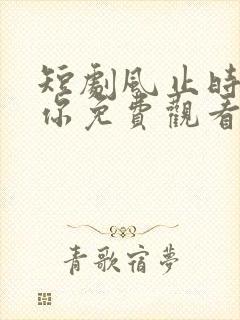 短劇風止時
你免費觀看
青歌宿夢